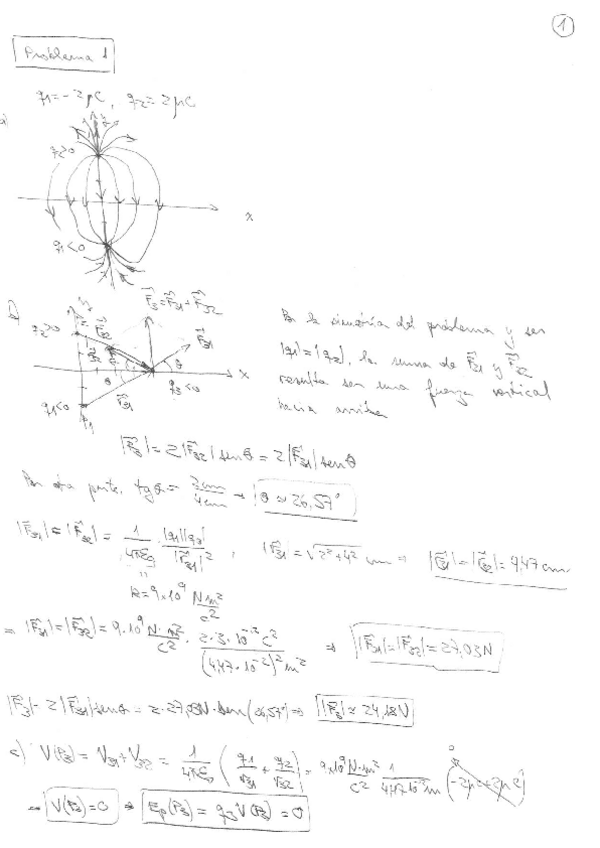 1
Problema 1
q1 = -2 μC, q2 = 2 μC
a)
q2>0
x
q1<0
b)
F⃗3 = F⃗31 + F⃗32
q2>0
F⃗31
θ
θ
x
q3<0
q1<0
r⃗31
Por la simetría del problema y ser
|q1| = |q2|, la suma de F⃗31 y F⃗32
resulta ser una fuerza vertical
hacia arriba
|F⃗3| = 2|F⃗32| sen θ = 2|F⃗31| sen θ
Por otra parte, tg θ = 2cm/4cm → θ ≈ 26,57°
|F⃗31| = |F⃗32| = 1/4πε0 · |q1||q3|/|r⃗31|² ; |r⃗31| = √2²+4² cm ⇒ |r⃗31| = |r⃗32| = 4,47 cm
"
k = 9×10⁹ N m²/C²
⇒ |F⃗31| = |F⃗32| = 9·10⁹ N·m²/C² · 2·3·10⁻¹² C²/(4,47·10⁻²)² m² ⇒ |F⃗31| = |F⃗32| = 27,03 N
|F⃗3| = 2|F⃗31| sen θ = 2·27,03 N · sen(26,57°) ⇒ |F⃗3| ≈ 24,18 N
0
c) V(P3) = V31 + V32 = 1/4πε0 (q1/r31 + q2/r32) = 9×10⁹ N·m²/C² 1/4,47·10⁻² m (-2μC+2μC)
→ V(P3) = 0 → Ep(P3) = q3 V(P3) = 0